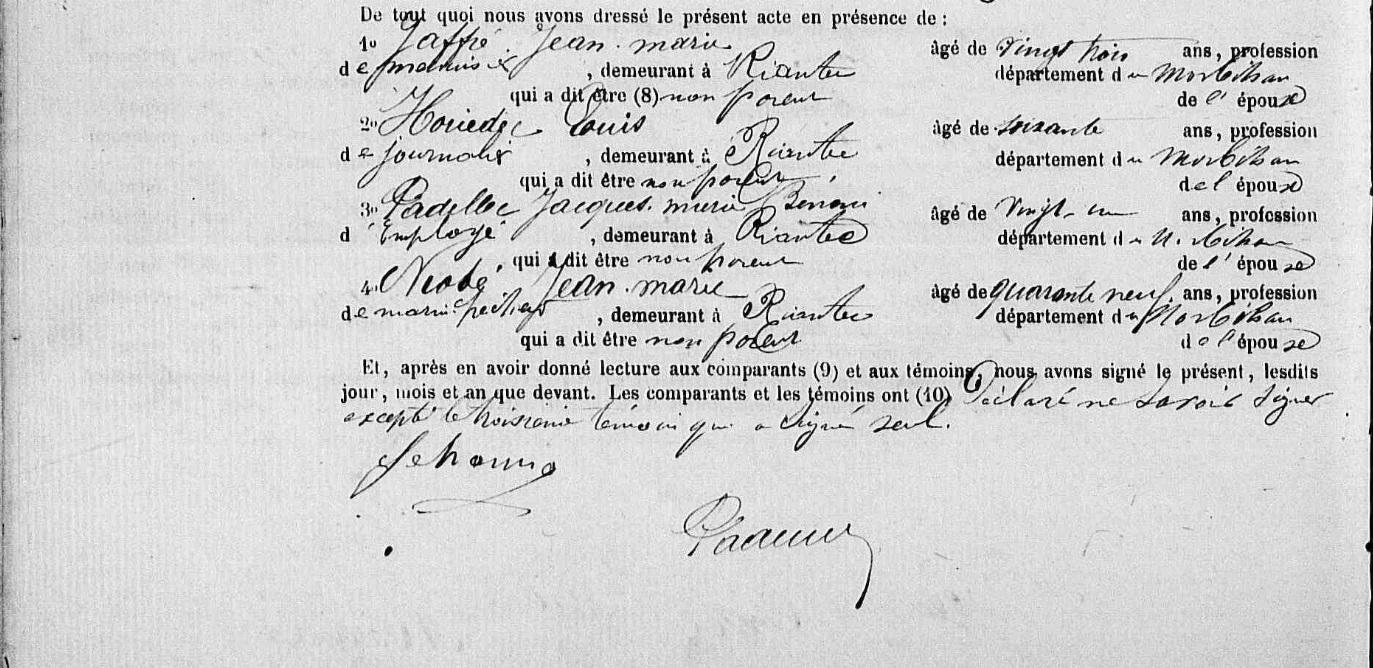 De tout quoi nous avons dressé le présent acte en présence de :
1o Jaffré Jean-marie âgé de vingt trois ans, profession
de menuisier, demeurant à Riantec département du Morbihan
qui a dit être (8) non parent de l'épouse
2o Houedec Louis âgé de soixante ans, profession
de journalier, demeurant à Riantec département du Morbihan
qui a dit être non parent de l'épouse
3o Jacques marie âgé de vingt-un ans, profession
d'Employé, demeurant à Riantec département du Morbihan
qui a dit être non parent de l'épouse
4o Jean-marie âgé de quarante neuf ans, profession
de marin pêcheur, demeurant à Riantec département du Morbihan
qui a dit être non parent de l'épouse
Et, après en avoir donné lecture aux comparants (9) et aux témoins, nous avons signé le présent, lesdits
jour, mois et an que devant. Les comparants et les témoins ont (10) Déclaré ne savoir signer
excepté le troisième témoin qui a signé seul.